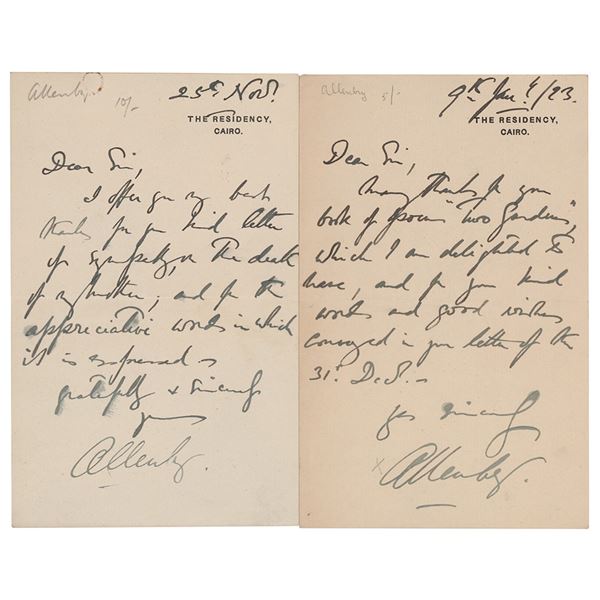 Allenby. 10/-
25th Nov.
THE RESIDENCY,
CAIRO.
Dear Sir,
I offer you my best
thanks for your kind letter
of sympathy, on the death
of my mother; and for the
appreciative words in which
it is expressed.
gratefully & sincerely
yours
Allenby.
Allenby 5/-
9th Jany/23.
THE RESIDENCY,
CAIRO.
Dear Sir,
Many thanks for your
book of poems "Two Gardens",
which I am delighted to
have, and for your kind
words and good wishes
conveyed in your letter of the
31st Decr.
Yrs sincerely
x Allenby.